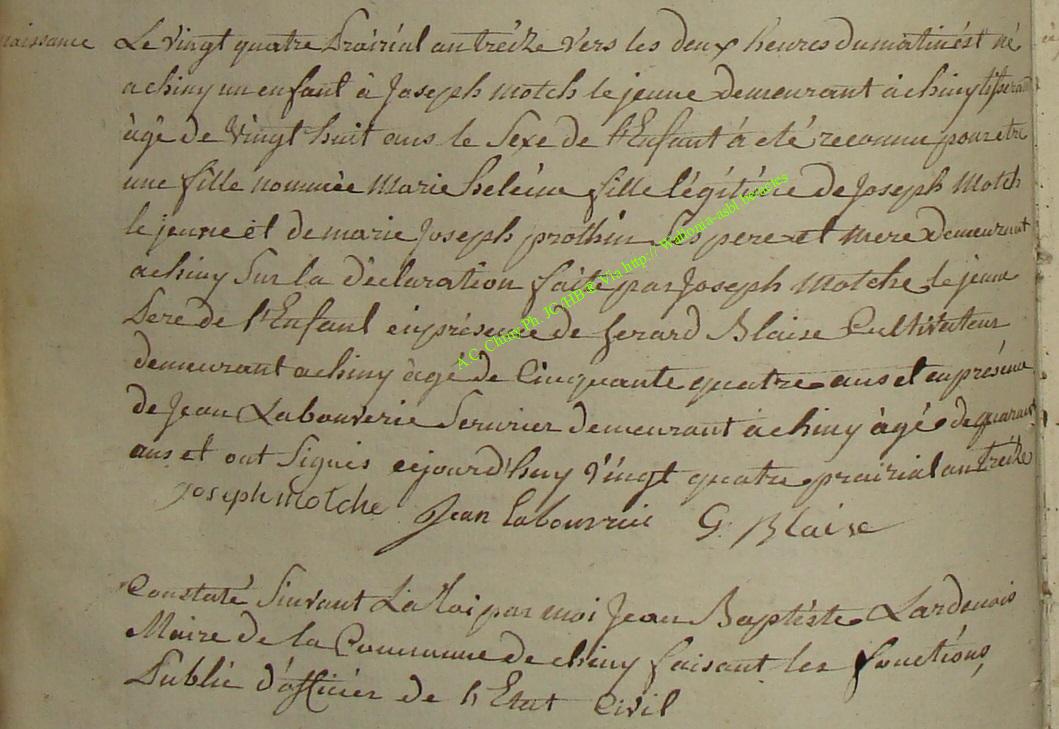 naissance Le vingt quatre Prairial an treize vers les deux heures du matin est né
a chiny un enfant à Joseph Motch le jeune demeurant à chiny tisserand
âgé de vingt huit ans le Sexe de l'Enfant à eté reconnu pour etre
une fille nommée Marie heleine fille légitime de Joseph Motch
le jeune et de marie Joseph prothin. les pere et mere demeurant
a chiny Sur la déclaration faite par Joseph Motche le jeune
Pere de l'Enfant en présence de gerard Blaise Cultivateur
demeurant a chiny âgé de Cinquante quatre ans et en présence
de Jean Labouverie Serurier demeurant à chiny âgé de quarante
ans et ont Signés cejourd'huy vingt quatre prairial an treize
Joseph Motche Jean Labouverie G. Blaise
Constaté Suivant La loi par moi Jean Baptiste Lardenois
Maire de la Commune de chiny faisant les fonctions
Public d'officier de l'Etat Civil
A.C. Chiny Ph. JC /HB @ Via http:// Wallonia-asbl be/actes